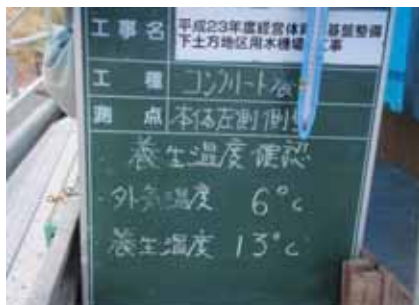 工事名 平成23年度経営体 基盤整備
下土方地区用水機場 工事
工種 コンクリート
測点 本体左側側
養生温度確認
・外気温度 6°c
養生温度 13°c